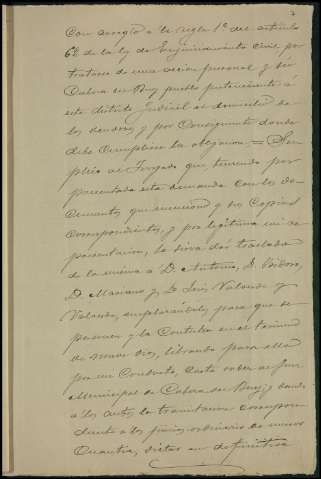 Con arreglo a la regla 1ª del articulo
62 de la ley de Enjuiciamiento civil por
tratarse de una accion personal y ser
Cabra del Rey pueblo perteneciente á
este distrito judicial el domicilio de
los deudores, y por consiguiente donde
debe cumplirse la obligacion = Su-
plico al Juzgado que teniendo por
presentada esta demanda con los do-
cumentos que menciono y sus copias
correspondientes, y por legítima mi re-
presentacion, se sirva dar traslado
de la misma á D. Antonio, D. Isidoro,
D. Mariano y D. Luis Valverde y
Valverde, emplazándoles para que se
personen y la contesten en el termino
de nueve dias, librando para ello
por mi conducto, carta orden al Juez
Municipal de Cabra del Rey; y dando
a los autos la tramitacion correspon-
diente a los juicios ordinarios de menor
Cuantia, dictar en definitiva